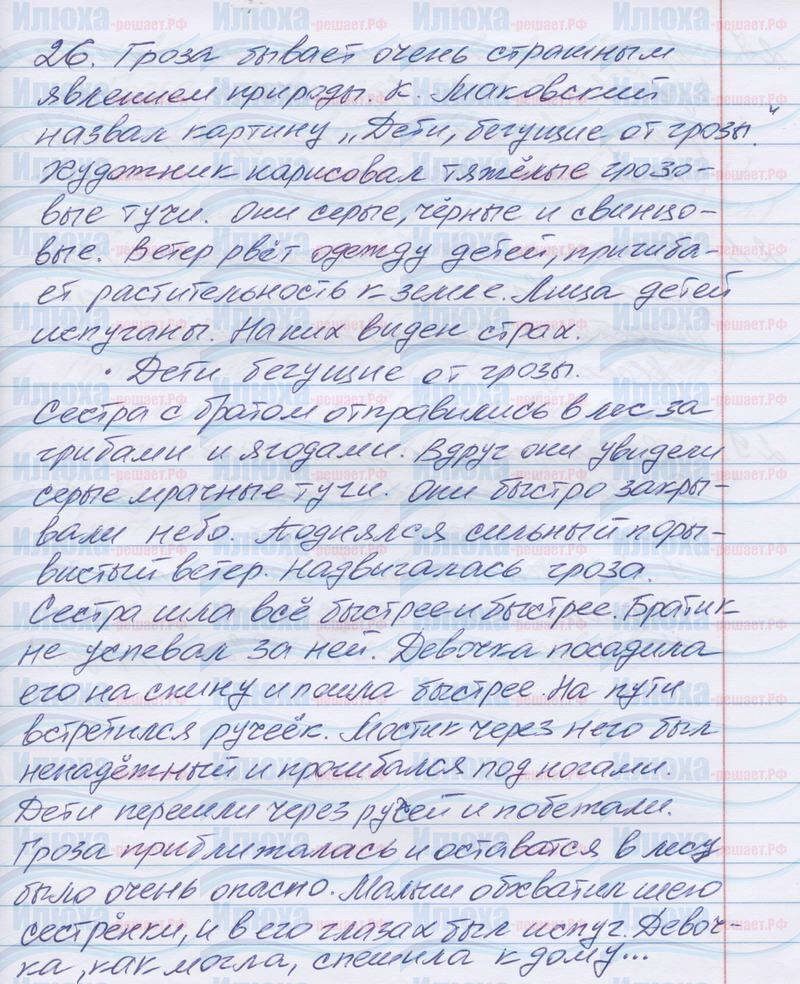 26. Гроза бывает очень страшным
явлением природы. К. Маковский
назвал картину „Дети, бегущие от грозы."
Художник нарисовал тяжёлые грозо-
вые тучи. Они серые, чёрные и свинцо-
вые. Ветер рвёт одежду детей, пригиба-
ет растительность к земле. Лица детей
испуганы. На них виден страх.
Дети бегущие от грозы.
Сестра с братом отправились в лес за
грибами и ягодами. Вдруг они увидели
серые мрачные тучи. Они быстро закры-
вали небо. Поднялся сильный поры-
вистый ветер. Надвигалась гроза.
Сестра шла всё быстрее и быстрее. Братик
не успевал за ней. Девочка посадила
его на спину и пошла быстрее. На пути
встретился ручеёк. Мостик через него был
ненадёжный и прогибался под ногами.
Дети перешли через ручей и побежали.
Гроза приближалась и оставатся в лесу
было очень опасно. Малыш обхватил шею
сестрёнки, и в его глазах был испуг. Девоч-
ка, как могла, спешила к дому...